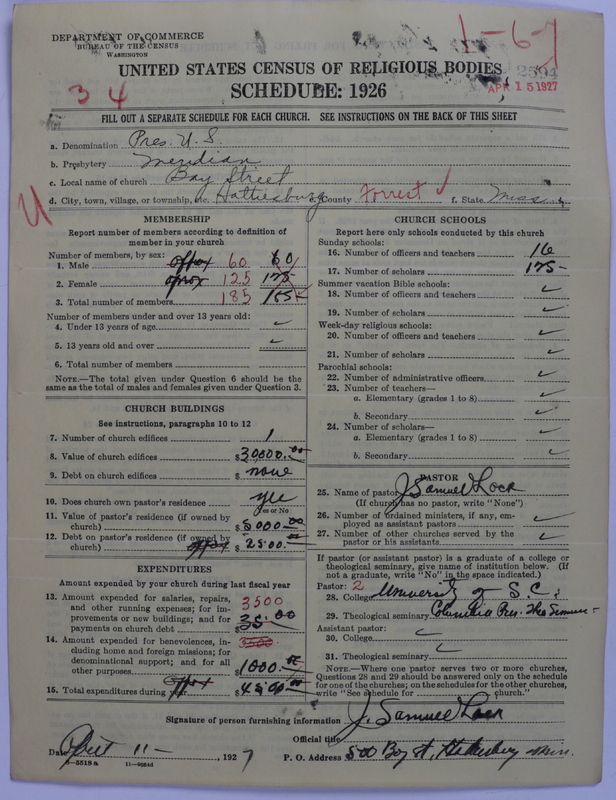 1-6-7
DEPARTMENT OF COMMERCE
BUREAU OF THE CENSUS
WASHINGTON
2594
APR 15 1927
UNITED STATES CENSUS OF RELIGIOUS BODIES
3 4
SCHEDULE: 1926
FILL OUT A SEPARATE SCHEDULE FOR EACH CHURCH. SEE INSTRUCTIONS ON THE BACK OF THIS SHEET
a. Denomination Pres. U.S.
b. Presbytery Meridian
c. Local name of church Bay Street
d. City, town, village, or township, etc. Hattiesburg e. County Forrest f. State Miss.
MEMBERSHIP
Report number of members according to definition of
member in your church
Number of members, by sex:
1. Male approx 60 60
2. Female approx 125 125
3. Total number of members 185 185
Number of members under and over 13 years old:
4. Under 13 years of age
5. 13 years old and over
6. Total number of members
NOTE.—The total given under Question 6 should be the
same as the total of males and females given under Question 3.
CHURCH BUILDINGS
See instructions, paragraphs 10 to 12
7. Number of church edifices 1
8. Value of church edifices $30000.00
9. Debt on church edifices $none
10. Does church own pastor's residence yes
Yes or No
11. Value of pastor's residence (if owned by
church) $5000.00
12. Debt on pastor's residence (if owned by
church) approx $2500.00
EXPENDITURES
Amount expended by your church during last fiscal year
13. Amount expended for salaries, repairs,
and other running expenses; for im-
provements or new buildings; and for
payments on church debt $3500
14. Amount expended for benevolences, in-
cluding home and foreign missions; for
denominational support; and for all
other purposes $1000.00
15. Total expenditures during year approx $4500.00
CHURCH SCHOOLS
Report here only schools conducted by this church
Sunday schools:
16. Number of officers and teachers 16
17. Number of scholars 175
Summer vacation Bible schools:
18. Number of officers and teachers
19. Number of scholars
Week-day religious schools:
20. Number of officers and teachers
21. Number of scholars
Parochial schools:
22. Number of administrative officers
23. Number of teachers—
a. Elementary (grades 1 to 8)
b. Secondary
24. Number of scholars—
a. Elementary (grades 1 to 8)
b. Secondary
PASTOR
25. Name of pastor J. Samuel Lock
(If church has no pastor, write "None")
26. Number of ordained ministers, if any, em-
ployed as assistant pastors
27. Number of other churches served by the
pastor or his assistants
If pastor (or assistant pastor) is a graduate of a college or
theological seminary, give name of institution below. (If
not a graduate, write "No" in the space indicated.)
Pastor: 2
28. College University of S.C.
29. Theological seminary Columbia Pres. Theo
Assistant pastor:
30. College
31. Theological seminary
NOTE.—Where one pastor serves two or more churches,
Questions 28 and 29 should be answered only on the schedule
for one of the churches; on the schedules for the other churches,
write "See schedule for church."
Signature of person furnishing information J. Samuel Lock
Official title
Date April 11- , 1927 P. O. Address 500 Bay St, Hattiesburg Miss.
8-5518a 11-9084d